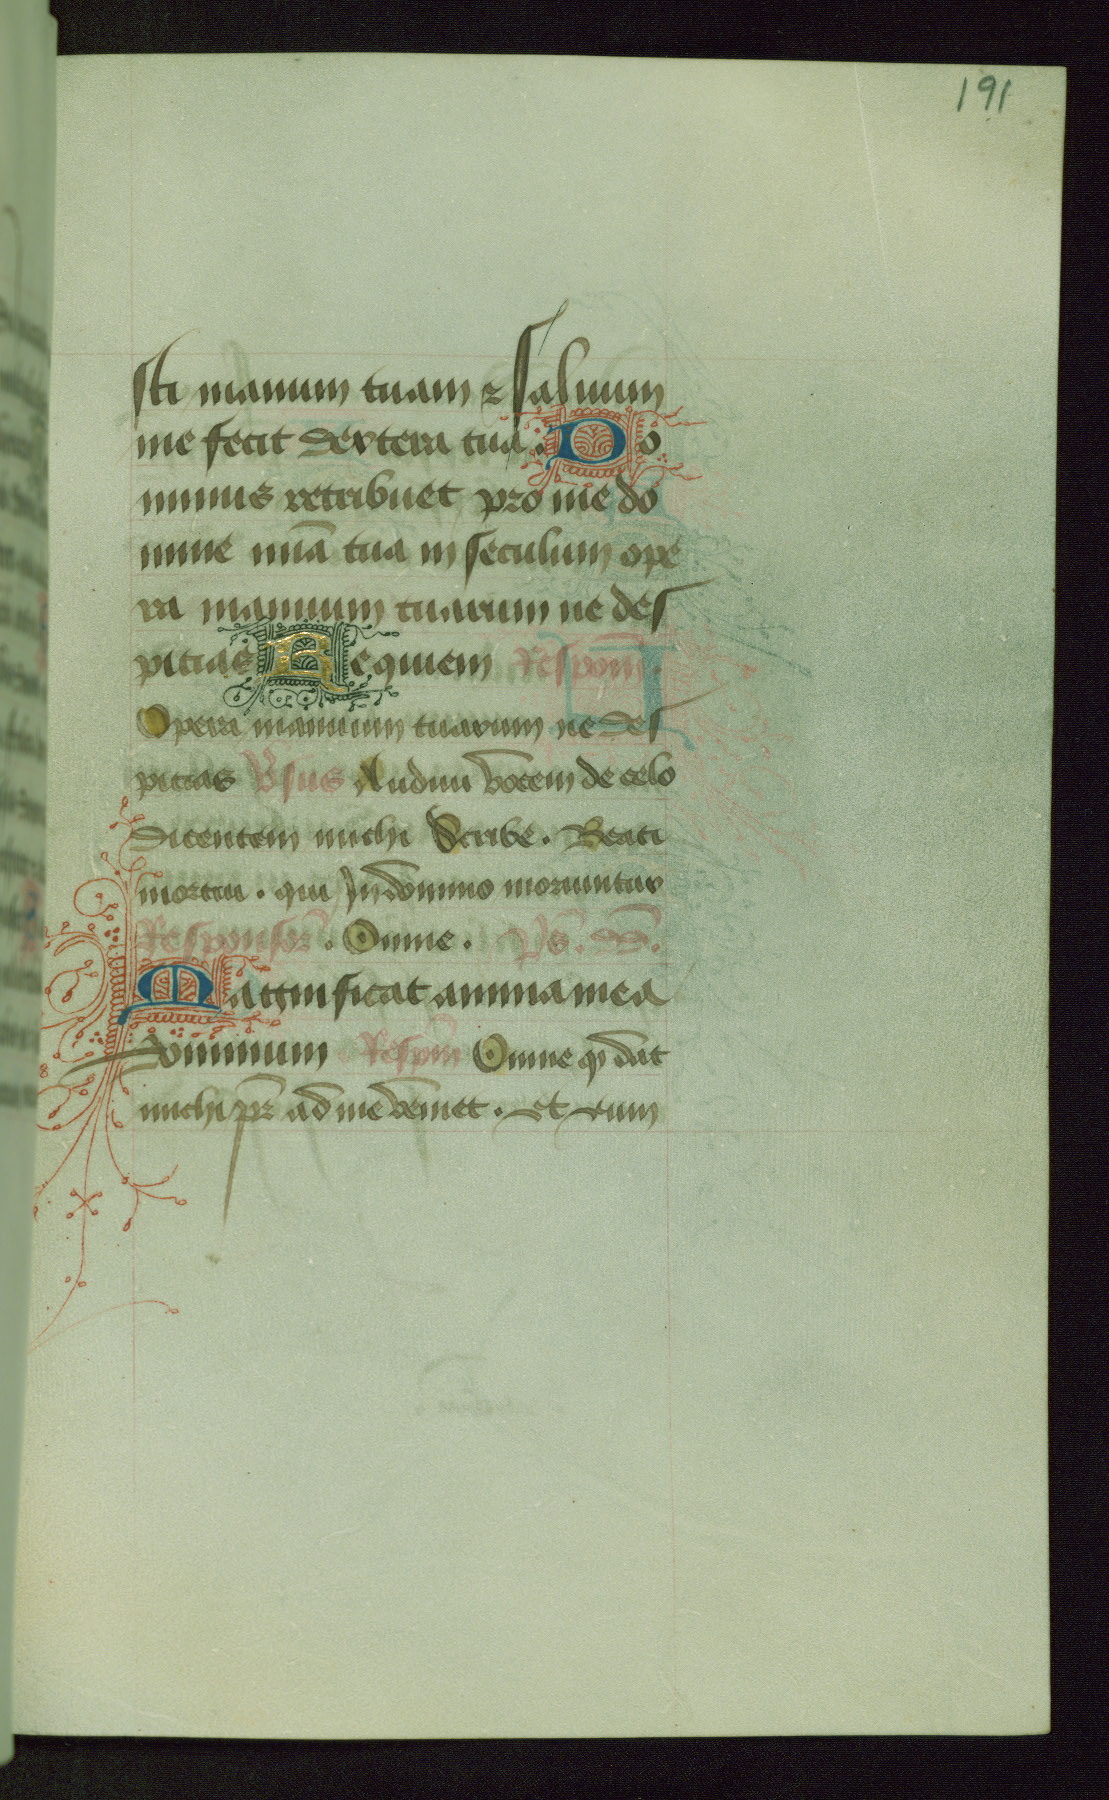 191
sti manum tuam ⁊ saluum
me fecit dextera tua. Do
minus retribuet pro me do
mine mīa tua in seculum ope
ra manuum tuarum ne des
picias Requiem Respom̄
Opera manuum tuarum ne des
picias Vsus Audiui vocem de celo
dicentem michi Scribe. Beati
mortui. qui In domino moriuntur
Responsor̄. Omne. p̄s. D̄D.
Magnificat anima mea
dominum Respm̄ Omne qd dat
michi pr̄ ad me veniet. et eum